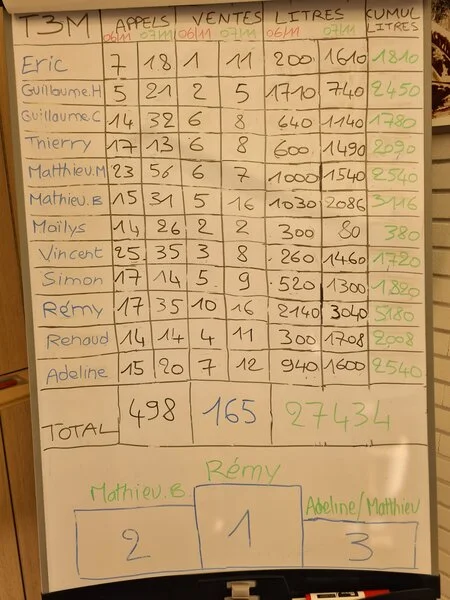 T3M APPELS VENTES LITRES CUMUL LITRES
06/11 07/11 06/11 07/11 06/11 07/11
Eric 7 18 1 11 200 1610 1810
Guillaume.H 5 21 2 5 1710 740 2450
Guillaume.C 14 32 6 8 640 1140 1780
Thierry 17 13 6 8 600 1490 2090
Matthieu.M 23 56 6 7 1000 1540 2540
Mathieu.B 15 31 5 16 1030 2086 3116
Maïlys 14 26 2 2 300 80 380
Vincent 25 35 3 8 260 1460 1720
Simon 17 14 5 9 520 1300 1820
Rémy 17 35 10 16 2140 3040 5180
Renaud 14 14 4 11 300 1708 2008
Adeline 15 20 7 12 940 1600 2540
TOTAL 498 165 27434
Rémy
Mathieu.B Adeline/Matthieu
2 1 3